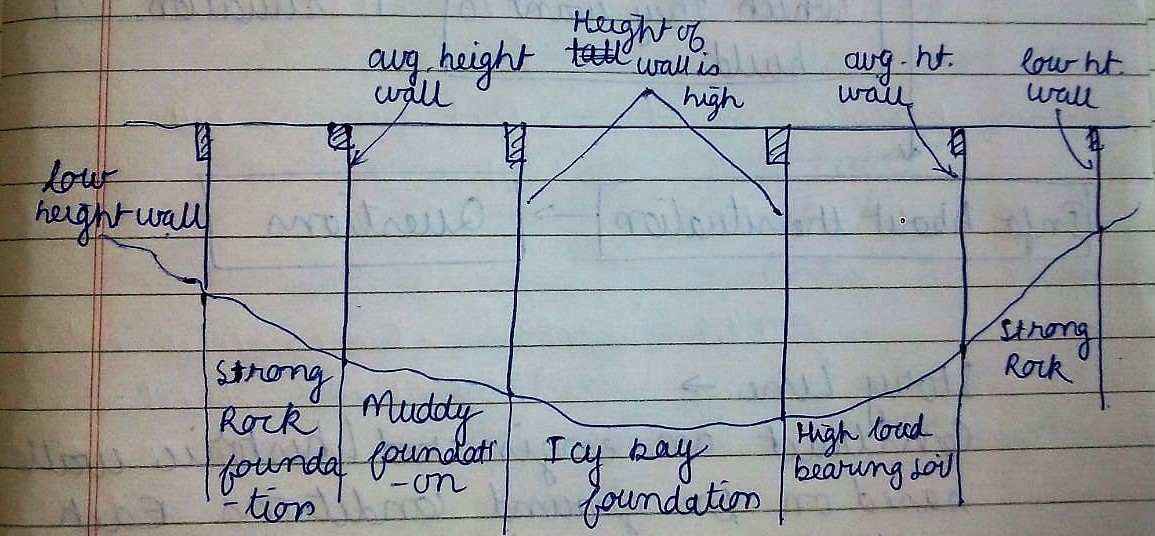 Height of
tall wall is
high
avg. height
wall
avg. ht.
wall
low ht.
wall
low
height wall
Strong
Rock
founda
-tion
Muddy
foundati
-on
Icy bay
foundation
High load
bearing soil
Strong
Rock